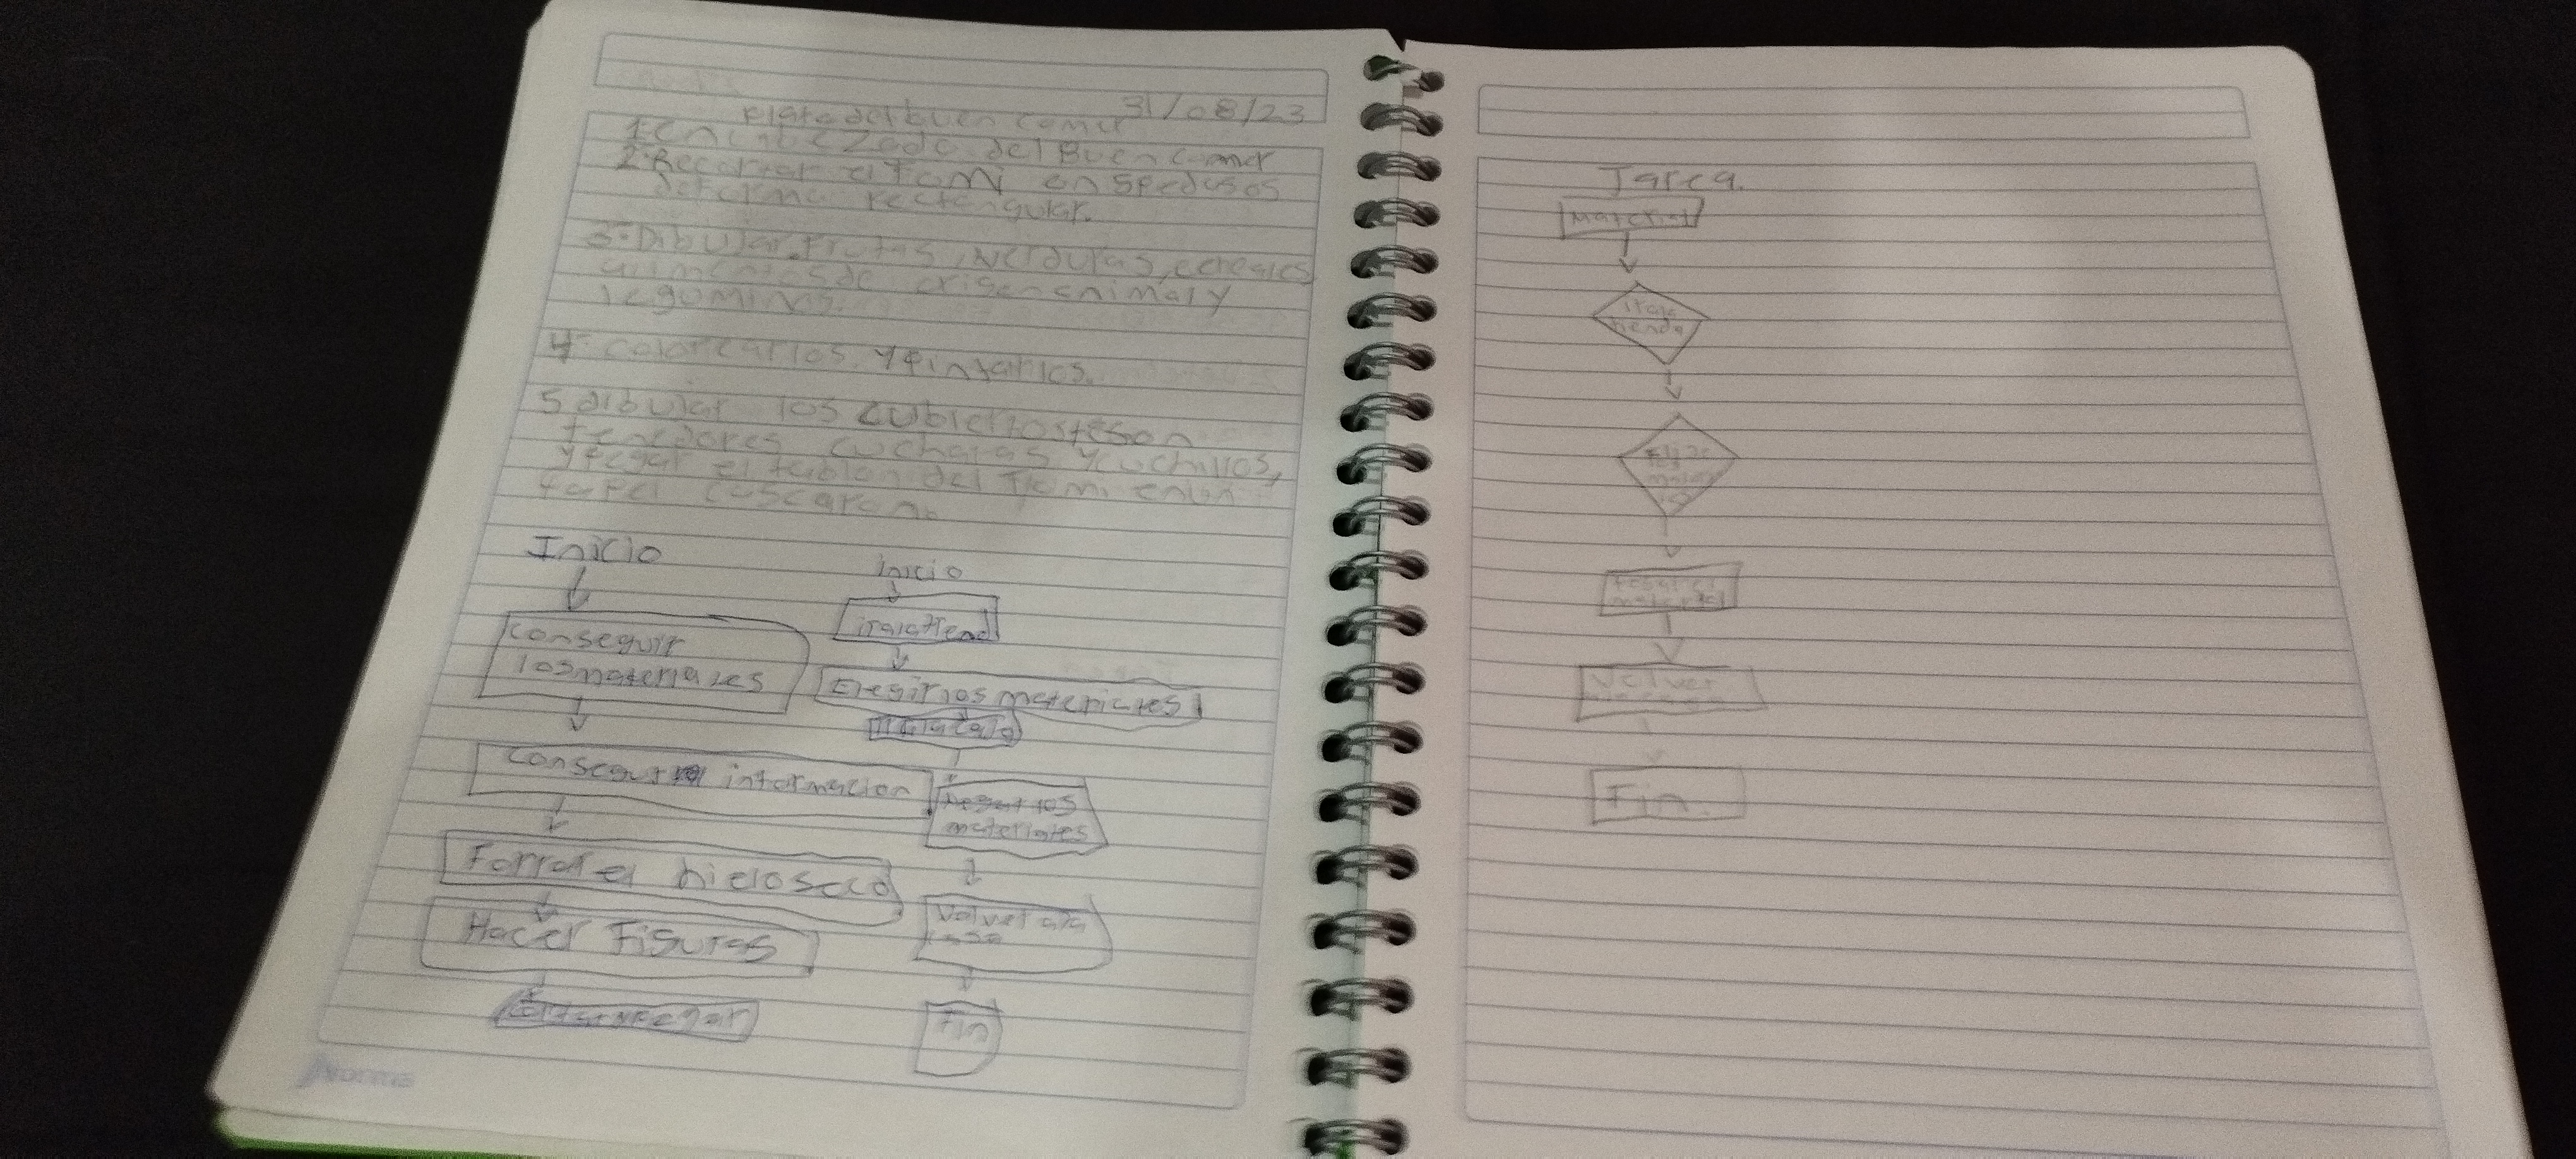 31/08/23
Plato del buen comer
1: encabezado del Buen comer
2: Recortar el Fomi en 5 pedasos
de forma rectangular.
3: Dibujar frutas, Verduras, cereales
alimentos de origen animal y
leguminas.
4: colorearlos y pintarlos.
5 dibujar los cubiertos
tenedores cucharas y cuchillos,
y pegar el tablon del Fomi en un
papel cascaron.
Inicio
conseguir
los materiales
Conseguir informacion
Forrar el hieloseco
Hacer Figuras
Inicio
ir a la tiend
Elegir los materiales
Pagar los
materiales
Volver a la
casa
Fin
Norma
Tarea.
Material
ir a la
tienda
Pagar el
material
Volver
Fin.